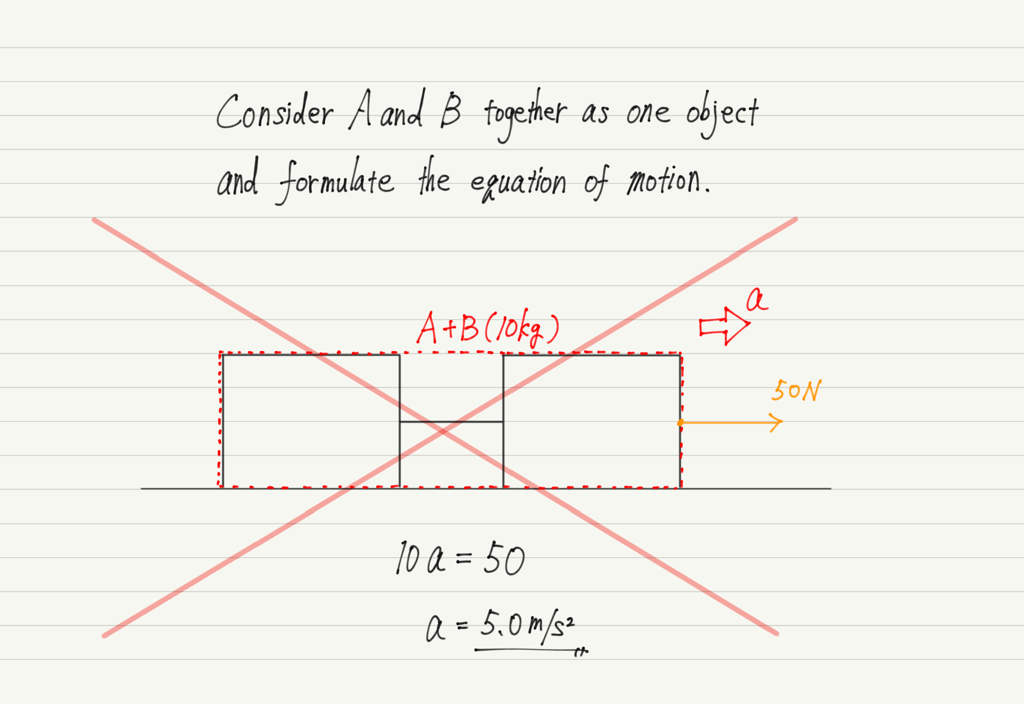 Consider A and B together as one object
and formulate the equation of motion.
a
A+B(10kg)
50N
10a = 50
a = 5.0m/s²